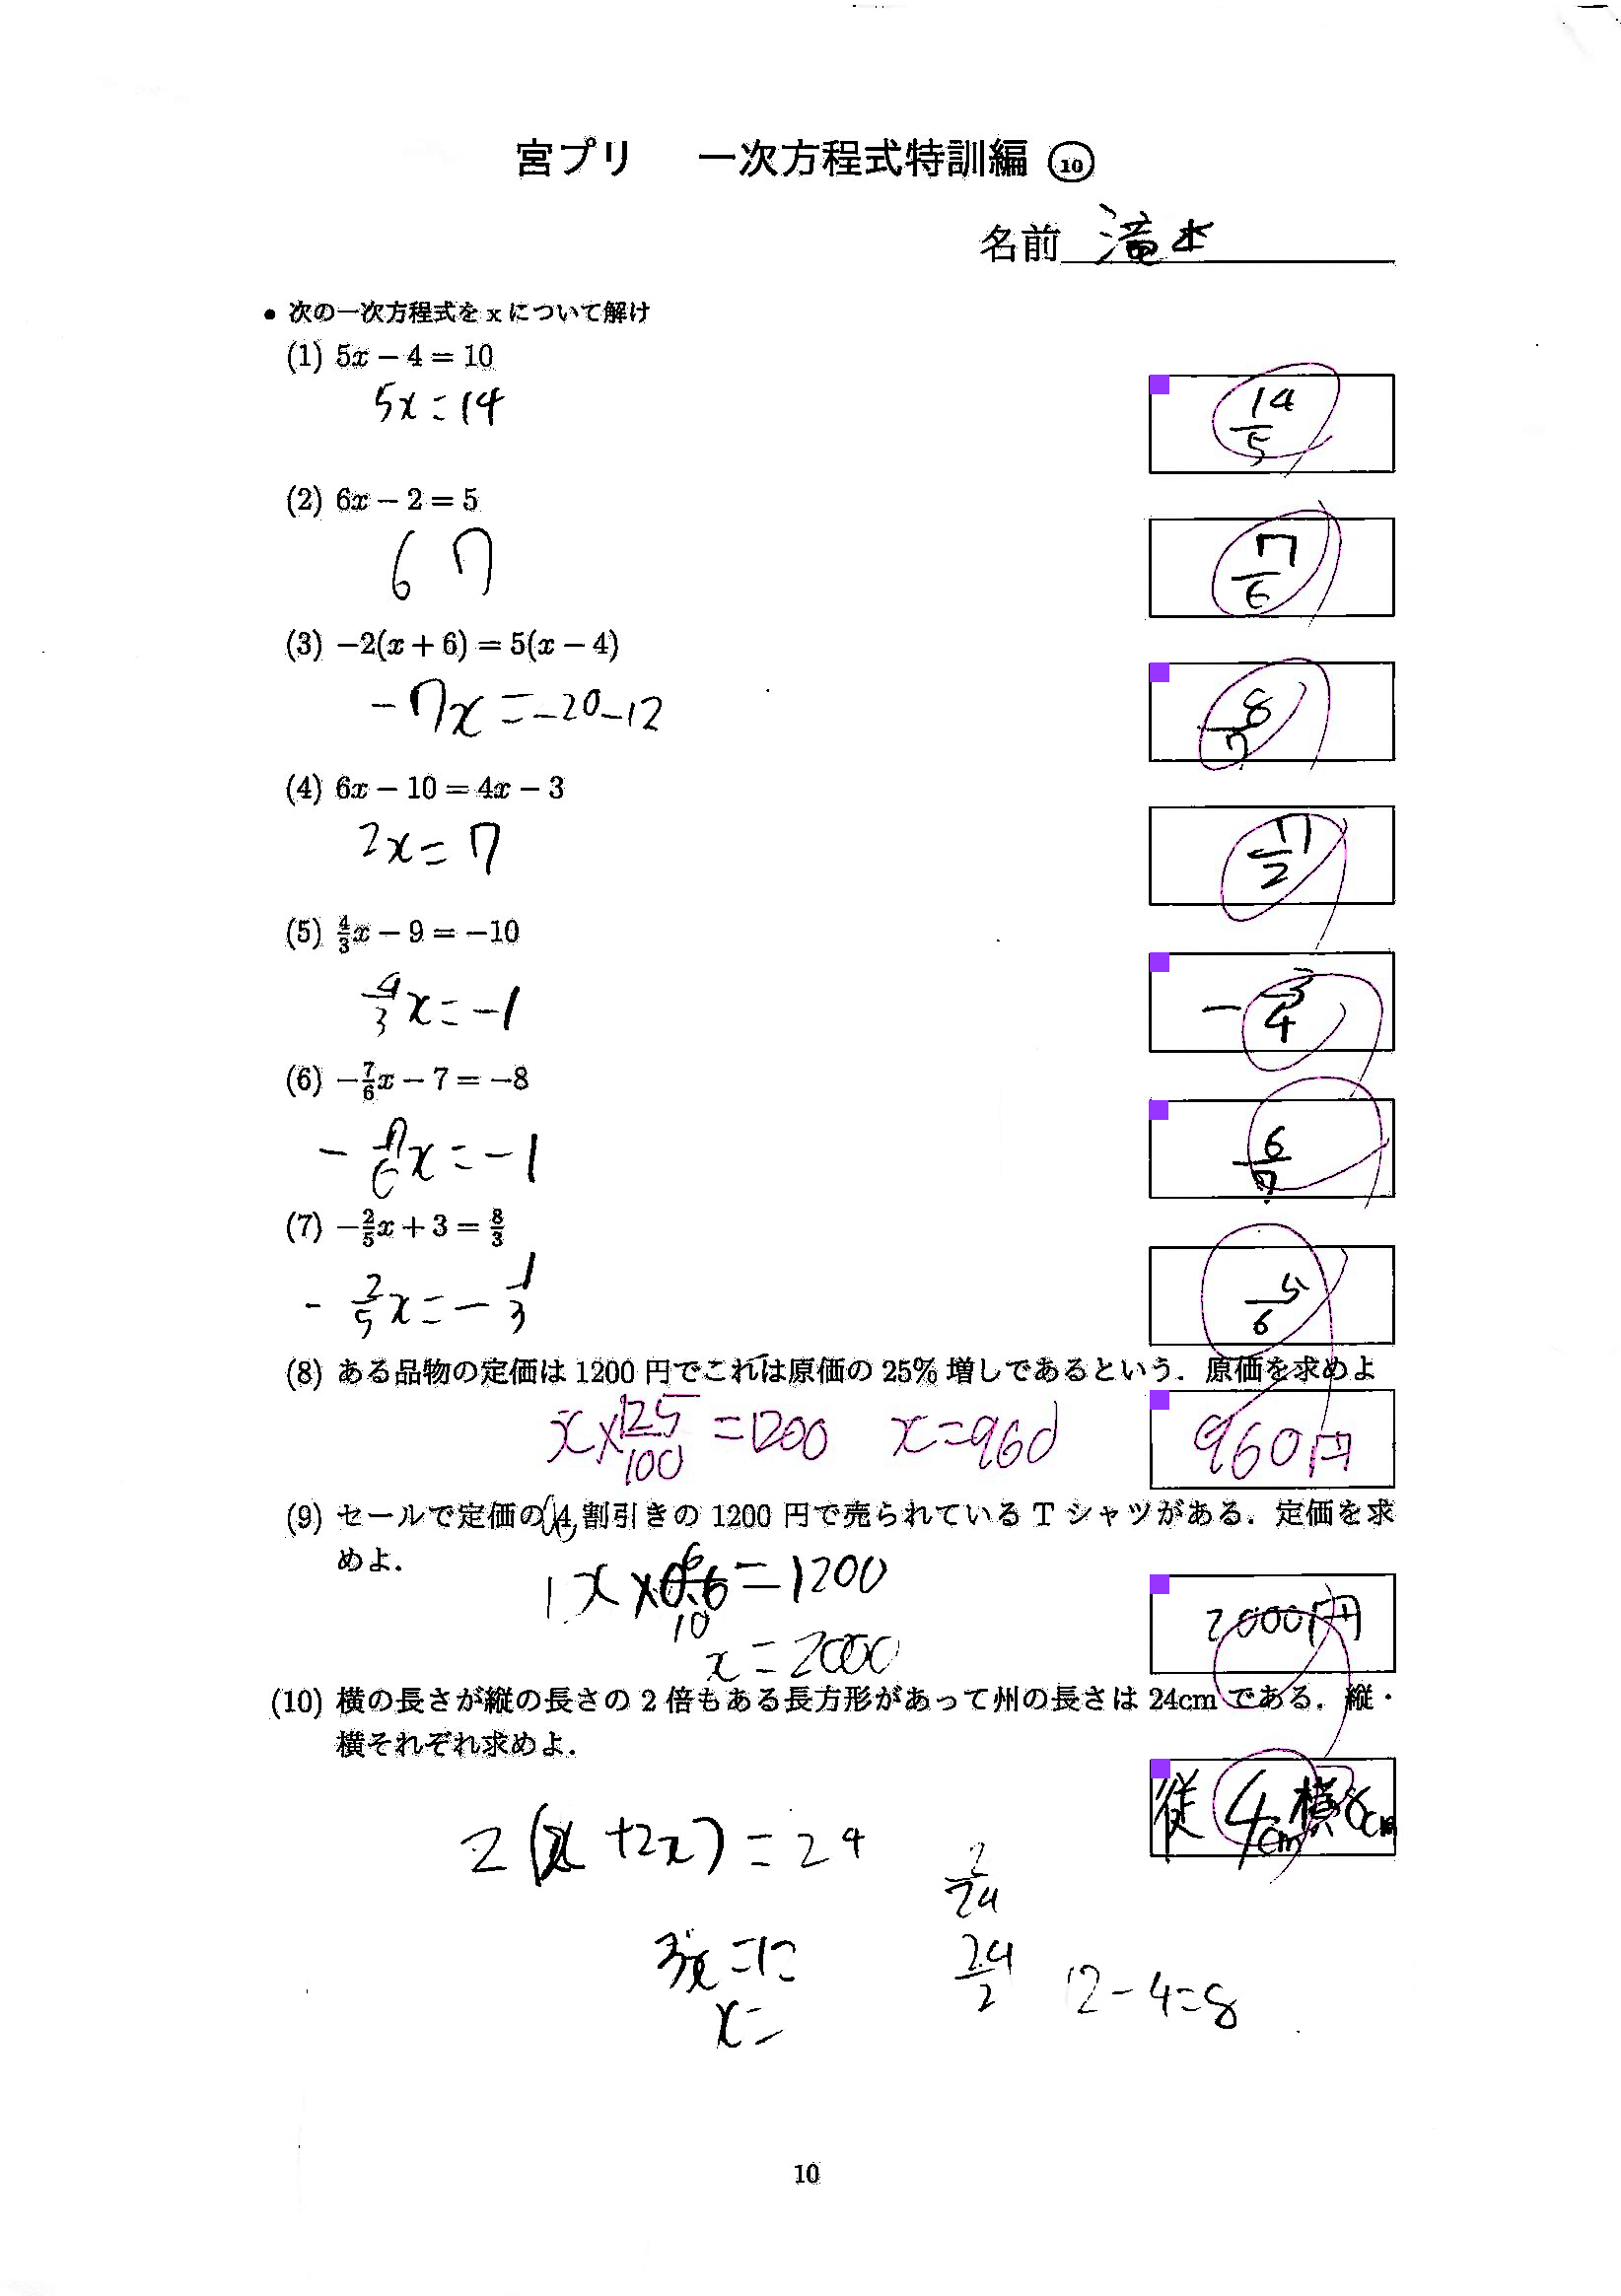 宮プリ 一次方程式特訓編 ⑩
名前 滝本
• 次の一次方程式を x について解け
(1) 5x − 4 = 10
5x = 14
14/5
(2) 6x − 2 = 5
6 7
7/6
(3) −2(x + 6) = 5(x − 4)
−7x = −20−12
8/7
(4) 6x − 10 = 4x − 3
2x = 7
7/2
(5) 4/3x − 9 = −10
4/3x = −1
−3/4
(6) −7/6x − 7 = −8
−7/6x = −1
6/7
(7) −2/5x + 3 = 8/3
−2/5x = −1/3
5/6
(8) ある品物の定価は 1200 円でこれは原価の 25% 増しであるという．原価を求めよ
x×125/100 = 1200 x=960
960円
(9) セールで定価の 4 割引きの 1200 円で売られている T シャツがある．定価を求
めよ．
x × 6/10 = 1200
x = 2000
2000円
(10) 横の長さが縦の長さの 2 倍もある長方形があって州の長さは 24cm である．縦・
横それぞれ求めよ．
従 4cm 横8cm
2(x+2x) = 24
3x = 12
x =
2/24
24/2
12−4=8
10